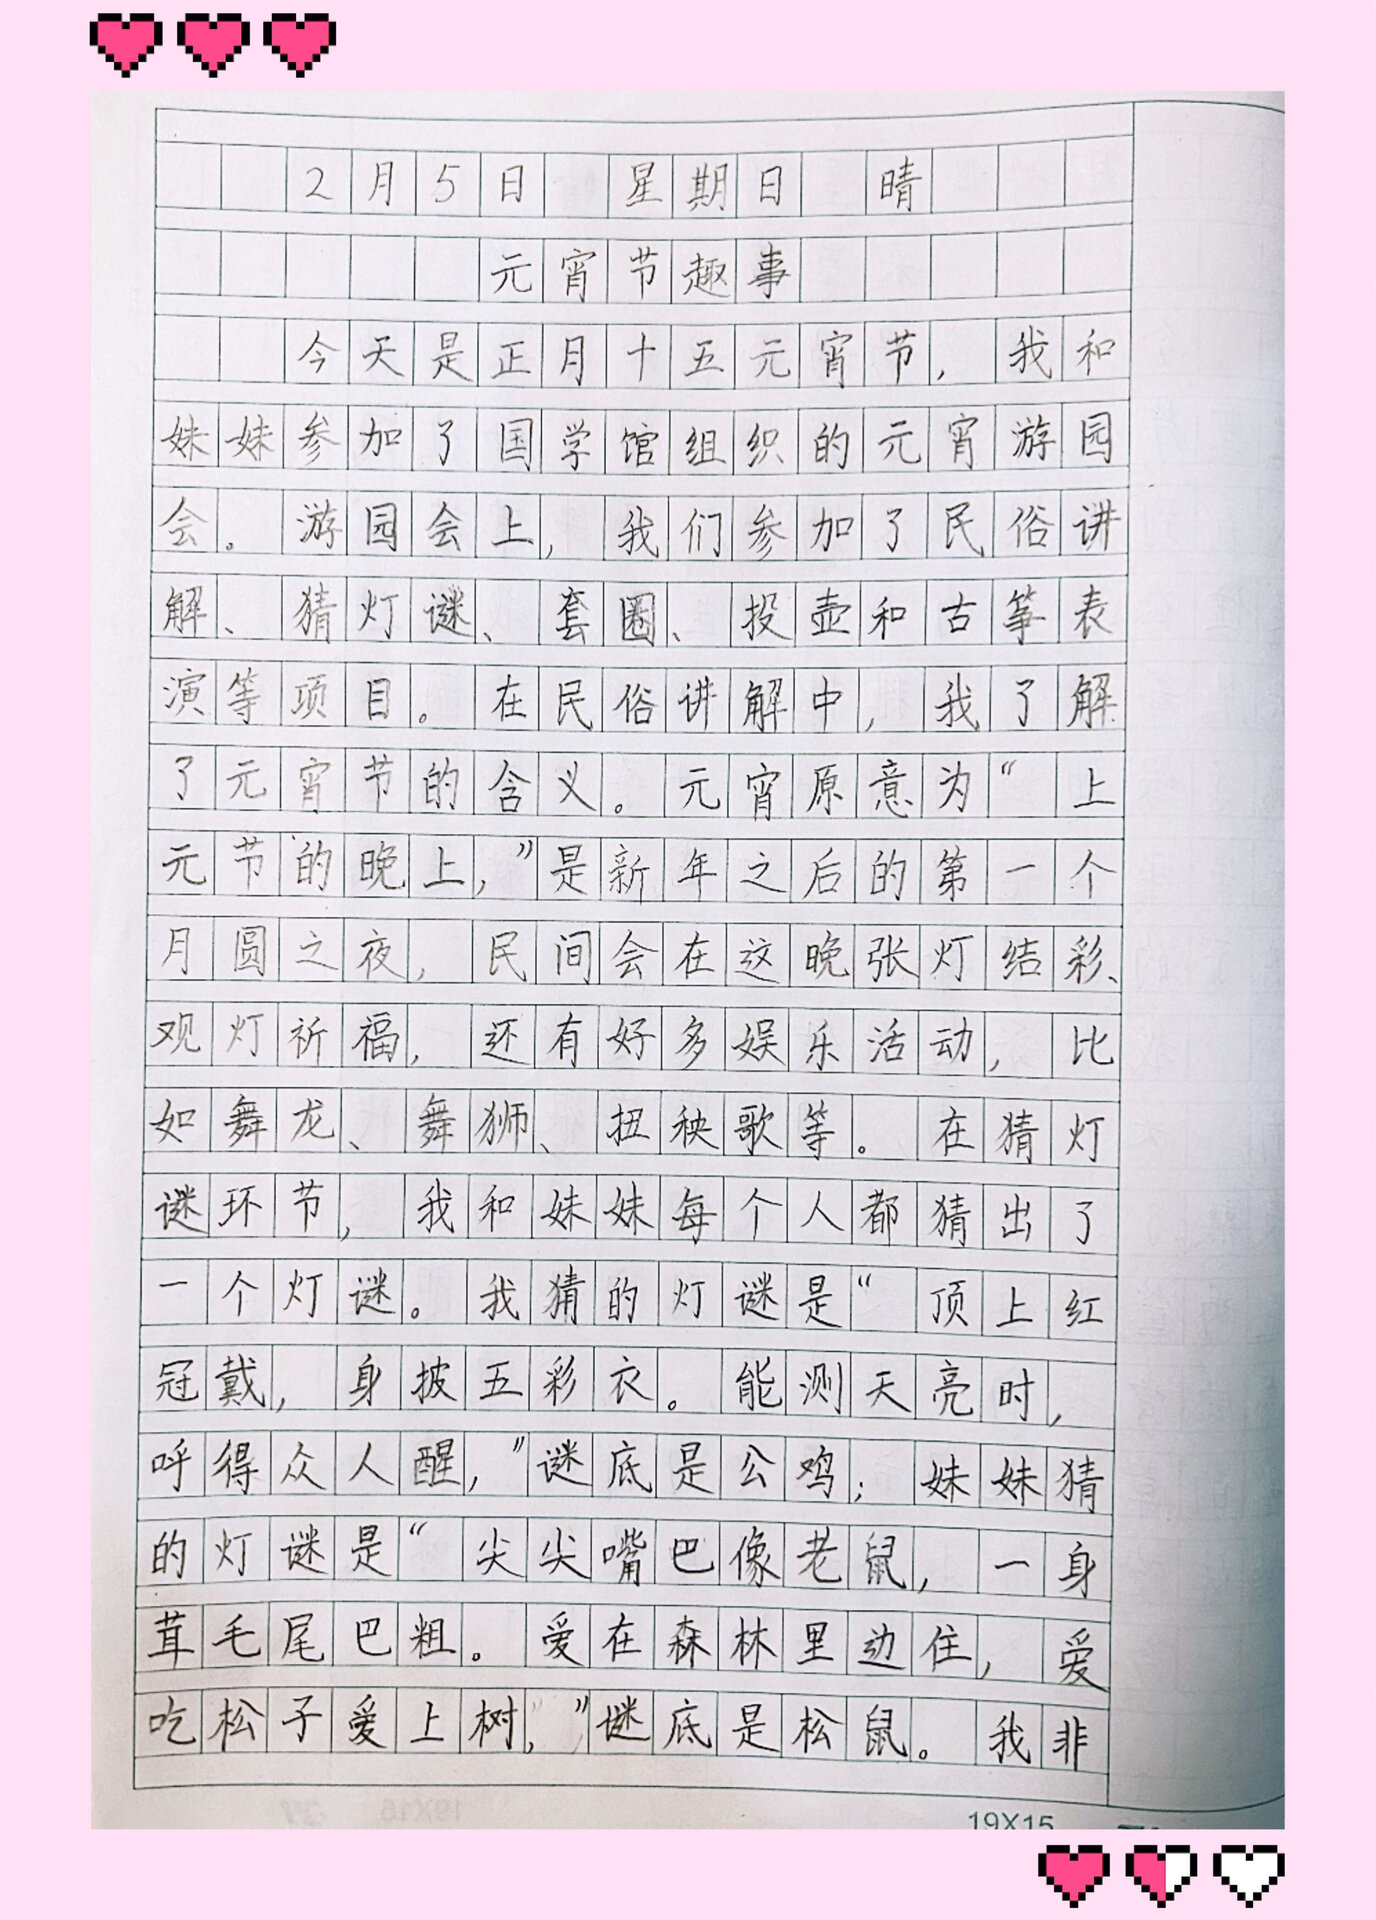 2月5日 星期日 晴
元宵节趣事
今天是正月十五元宵节，我和
妹妹参加了国学馆组织的元宵游园
会。游园会上，我们参加了民俗讲
解、猜灯谜、套圈、投壶和古筝表
演等项目。在民俗讲解中，我了解
了元宵节的含义。元宵原意为“上
元节的晚上，”是新年之后的第一个
月圆之夜，民间会在这晚张灯结彩、
观灯祈福，还有好多娱乐活动，比
如舞龙、舞狮、扭秧歌等。在猜灯
谜环节，我和妹妹每个人都猜出了
一个灯谜。我猜的灯谜是“顶上红
冠戴，身披五彩衣。能测天亮时，
呼得众人醒，”谜底是公鸡；妹妹猜
的灯谜是“尖尖嘴巴像老鼠，一身
茸毛尾巴粗。爱在森林里边住，爱
吃松子爱上树，”谜底是松鼠。我非
19X15